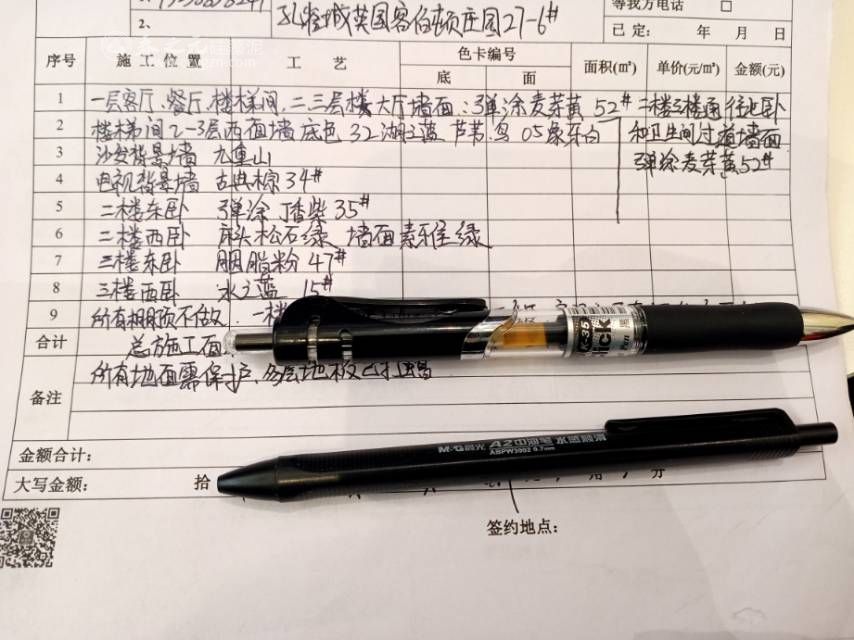 1、
孔雀城英国客伯顿庄园27-6#
等我方电话 □
2、
已定： 年 月 日
序号 施工位置 工艺 色卡编号 面积(㎡) 单价(元/㎡) 金额(元)
底 面
1 一层客厅、餐厅、楼梯间、二、三层楼大厅墙面：弹涂麦芽黄52# 二楼三楼通往北卧
2 楼梯间2-3层西面墙 底色 32 湖之蓝 芦苇、鸟 05象牙白 和卫生间过道墙面
3 沙发背景墙 九重山 弹涂麦芽黄52#
4 电视背景墙 古典棕34#
5 二楼东卧 弹涂丁香紫35#
6 二楼西卧 床头松石绿 墙面素雅绿
7 三楼东卧 胭脂粉47#
8 三楼西卧 水之蓝 15#
9 所有棚顶不做、一楼
合计 总方施工面
所有地面需保护、多层地板已打
备注
M&G晨光 A2中油笔 水感顺滑
ABPW3002 0.7mm
K-35
金额合计：
大写金额： 拾 分
签约地点：